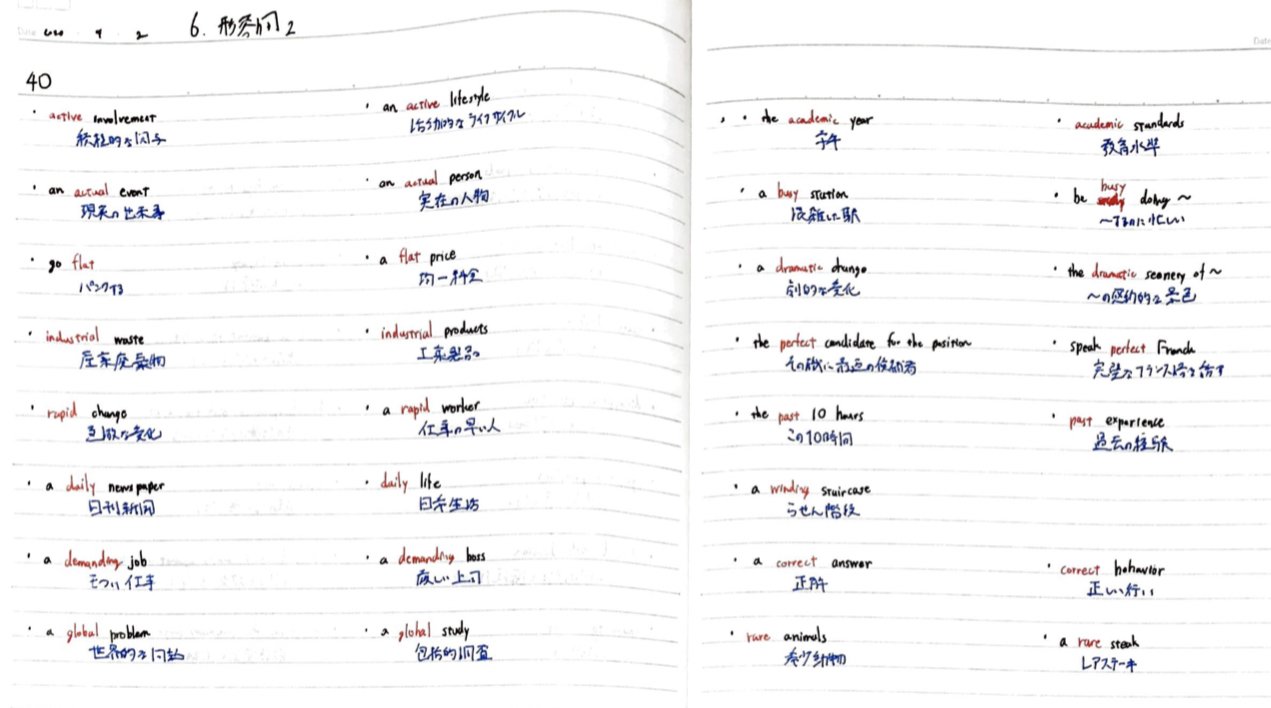 Date 2020 9 2
6. 形容詞 2
40
・active involvement
積極的な関与
・an active lifestyle
活動的なライフサイクル
・an actual event
現実の出来事
・an actual person
実在の人物
・go flat
パンクする
・a flat price
均一料金
・industrial waste
産業廃棄物
・industrial products
工業製品
・rapid change
急激な変化
・a rapid worker
仕事の早い人
・a daily newspaper
日刊新聞
・daily life
日常生活
・a demanding job
きつい仕事
・a demanding boss
厳しい上司
・a global problem
世界的な問題
・a global study
包括的調査
Date
・the academic year
学年
・academic standards
教育水準
・a busy station
混雑した駅
・be busy doing ~
~するのに忙しい
・a dramatic change
劇的な変化
・the dramatic scenery of ~
~の感動的な景色
・the perfect candidate for the position
その職に最適の候補者
・speak perfect French
完璧なフランス語を話す
・the past 10 hours
この10時間
・past experience
過去の経験
・a winding staircase
らせん階段
・a correct answer
正解
・correct behavior
正しい行い
・rare animals
希少動物
・a rare steak
レアステーキ